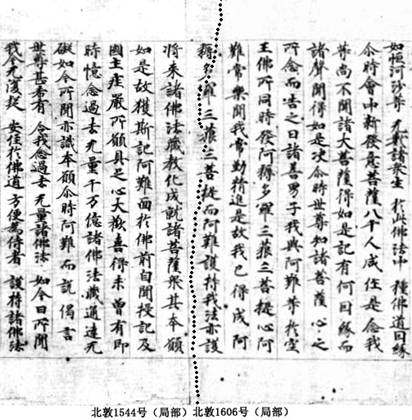 如恒河沙等 无數諸衆生 於此佛法中 種佛道因緣
尒時會中新發意菩薩八千人咸作是念我
等尚不聞諸大菩薩得如是記有何因緣而
諸聲聞得如是決尒時世尊知諸菩薩心之
所念而告之曰諸善男子我與阿難等於空
王佛所同時發阿耨多羅三藐三菩提心阿
難常樂聞我常勤精進是故我已得成阿
耨多羅三藐三菩提而阿難護持我法亦護
將來諸佛法藏教化成就諸菩薩衆其本願
如是故獲斯記阿難面於佛前自聞授記及
國土莊嚴所願具足心大歡喜得未曾有即
時憶念過去无量千万億諸佛法藏通達无
礙如今所聞亦識本願尒時阿難而說偈言
世尊甚希有 令我念過去 无量諸佛法 如今日所聞
我今无復疑 安住於佛道 方便爲侍者 護持諸佛法
北敦1544号（局部）
北敦1606号（局部）